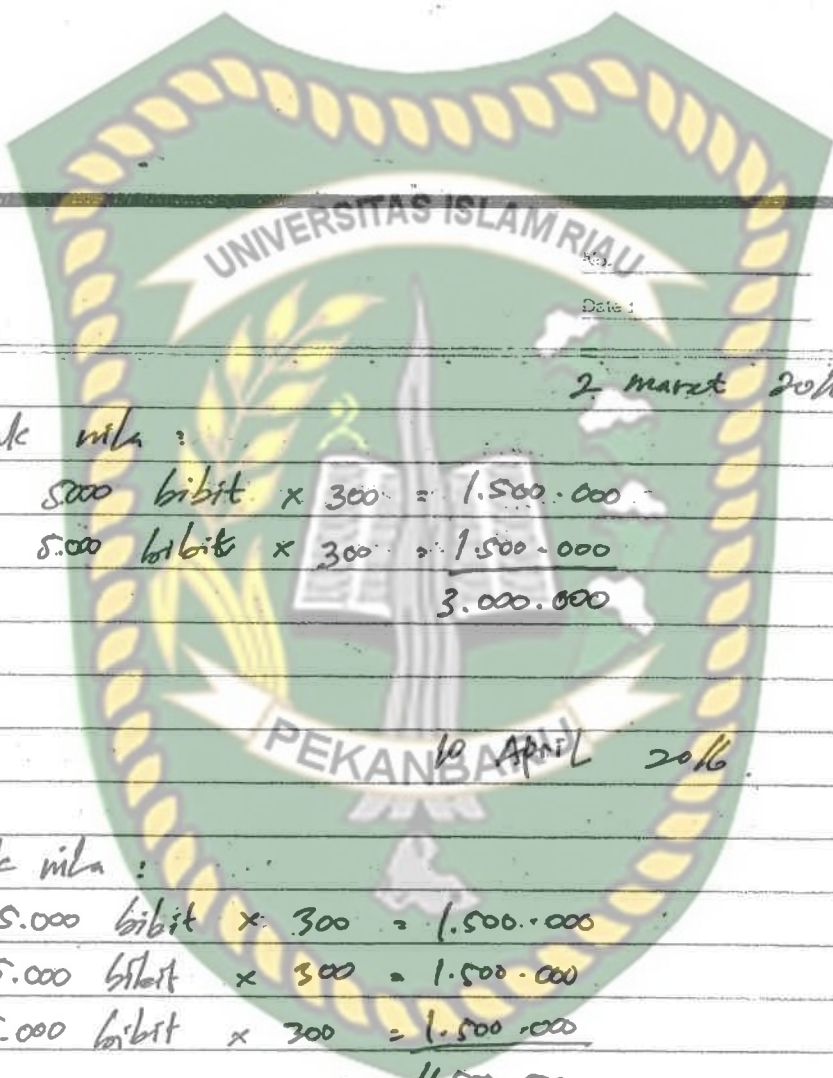 UNIVERSITAS ISLAM RIAU
No.
Date :
2 maret
nila :
5000 bibit × 300 = 1.500.000
5.000 bibit × 300 = 1.500.000
3.000.000
PEKANBARU
10 April 2016
nila :
5.000 bibit × 300 = 1.500.000
5.000 bibit × 300 = 1.500.000
5.000 bibit × 300 = 1.500.000